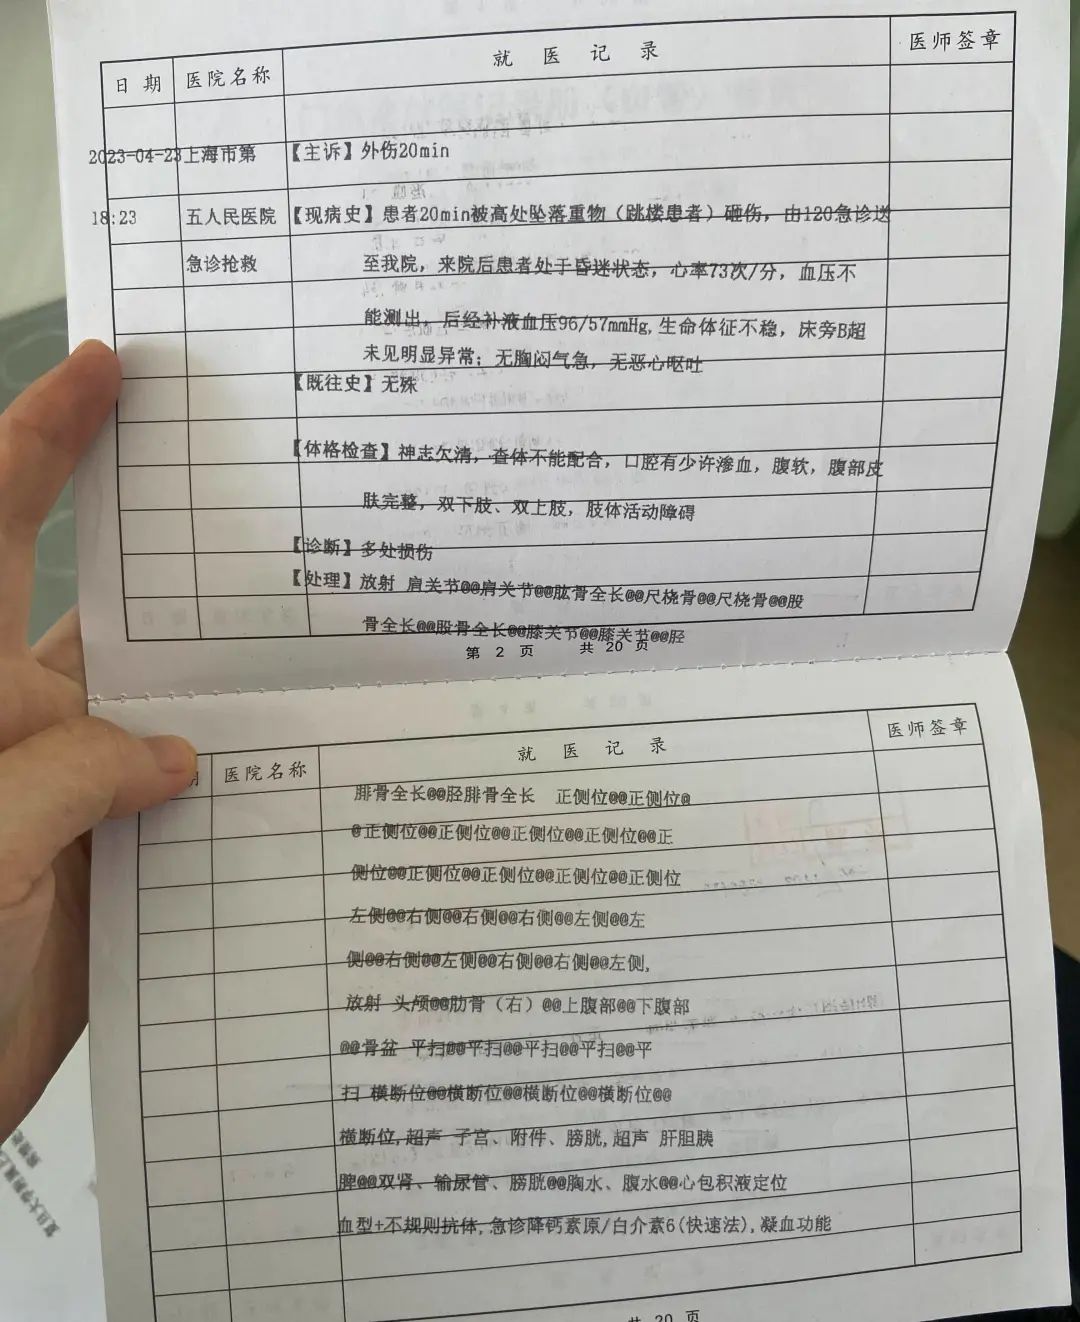 日 期 医院名称 就 医 记 录 医师签章
2023-04-23 上海市第 【主诉】外伤20min
18:23 五人民医院 【现病史】患者20min被高处坠落重物（跳楼患者）砸伤，由120急诊送
急诊抢救 至我院，来院后患者处于昏迷状态，心率73次/分，血压不
能测出，后经补液血压96/57mmHg,生命体征不稳，床旁B超
未见明显异常；无胸闷气急，无恶心呕吐
【既往史】无殊
【体格检查】神志欠清，查体不能配合，口腔有少许渗血，腹软，腹部皮
肤完整，双下肢、双上肢，肢体活动障碍
【诊断】多处损伤
【处理】放射 肩关节@@肩关节@@肱骨全长@@尺桡骨@@尺桡骨@@股
骨全长@@股骨全长@@膝关节@@膝关节@@胫
第 2 页 共 20 页
期 医院名称 就 医 记 录 医师签章
腓骨全长@@胫腓骨全长 正侧位@@正侧位@
@正侧位@@正侧位@@正侧位@@正侧位@@正
侧位@@正侧位@@正侧位@@正侧位@@正侧位
左侧@@右侧@@右侧@@右侧@@左侧@@左
侧@@右侧@@左侧@@右侧@@右侧@@左侧,
放射 头颅@@肋骨（右）@@上腹部@@下腹部
@@骨盆 平扫@@平扫@@平扫@@平扫@@平
扫 横断位@@横断位@@横断位@@横断位@@
横断位,超声 子宫、附件、膀胱,超声 肝胆胰
脾@@双肾、输尿管、膀胱@@胸水、腹水@@心包积液定位
血型+不规则抗体,急诊降钙素原/白介素6(快速法),凝血功能
共 20 页